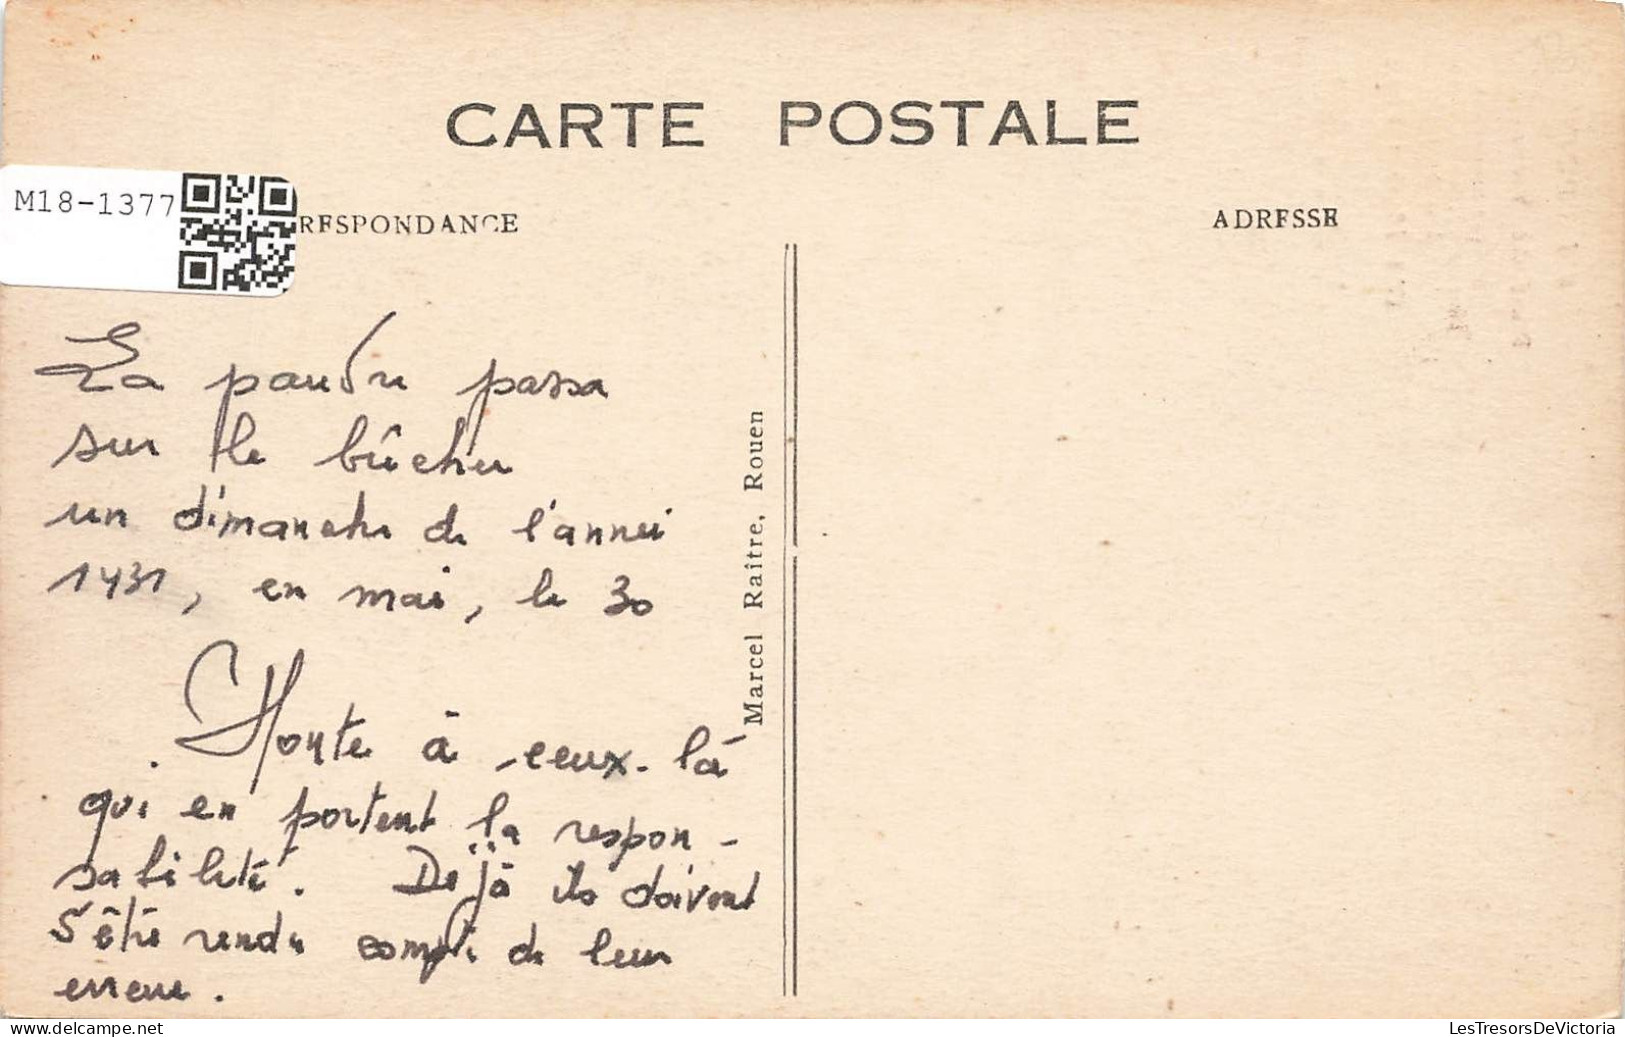 CARTE POSTALE
M18-1377
RESPONDANCE
ADRESSE
La pauvre passa
sur le bûcher
un dimanche de l'année
1431, en mai, le 30
Honte à ceux-là
qui en portent la respon-
sabilité. Déjà ils doivent
s'être rendu compte de leur
erreur.
Marcel Raître, Rouen
delcampe.net
LesTresorsDeVictoria